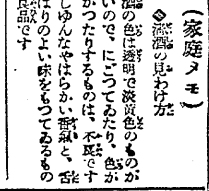 (家庭メモ)
◇清酒の見わけ方
清酒の色は透明で淡黄色のものが
いので、にごつてゐたり、色が
かつたりするものは、不良です
しゆんなやはらかい香気と、舌
はりのよい味をもつてゐるもの
良品です